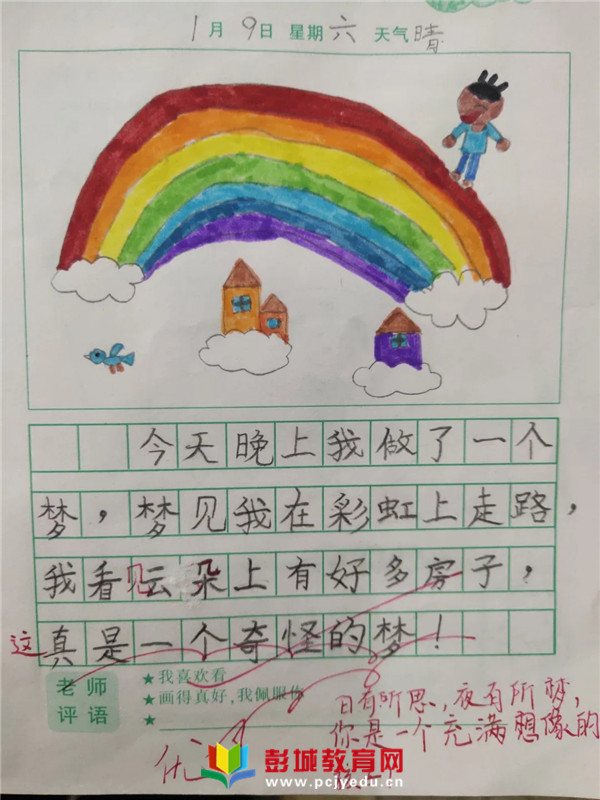 1月9日 星期六 天气晴
今天晚上我做了一个
梦，梦见我在彩虹上走路，
我看见云朵上有好多房子，
这真是一个奇怪的梦！
老师评语
★我喜欢看
★画得真好，我佩服你
★
优
日有所思，夜有所梦，
你是一个充满想像的
彭城教育网
www.pcjyedu.com